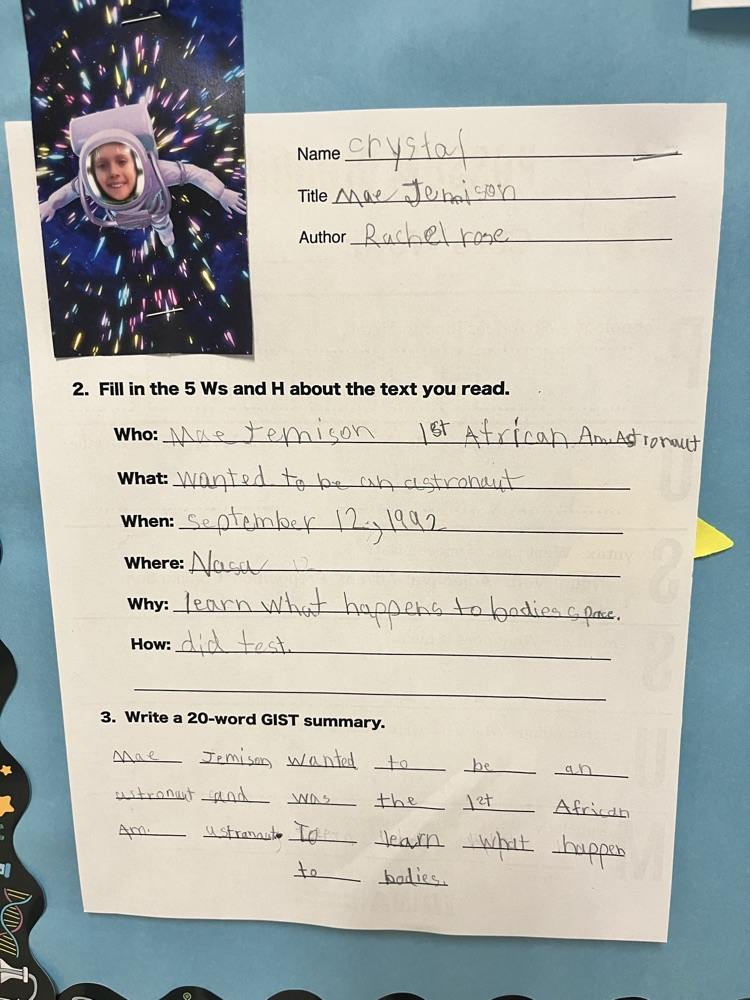 Name crystal
Title Mae Jemison
Author Rachel rose
2. Fill in the 5 Ws and H about the text you read.
Who: Mae Jemison 1st African Am. Astronaut
What: wanted to be an astronaut
When: september 12, 1992
Where: Nasa
Why: learn what happens to bodies space.
How: did test.
3. Write a 20-word GIST summary.
Mae Jemison wanted to be an
astronaut and was the 1st African
Am. astranaut. To learn what happen
to bodies.